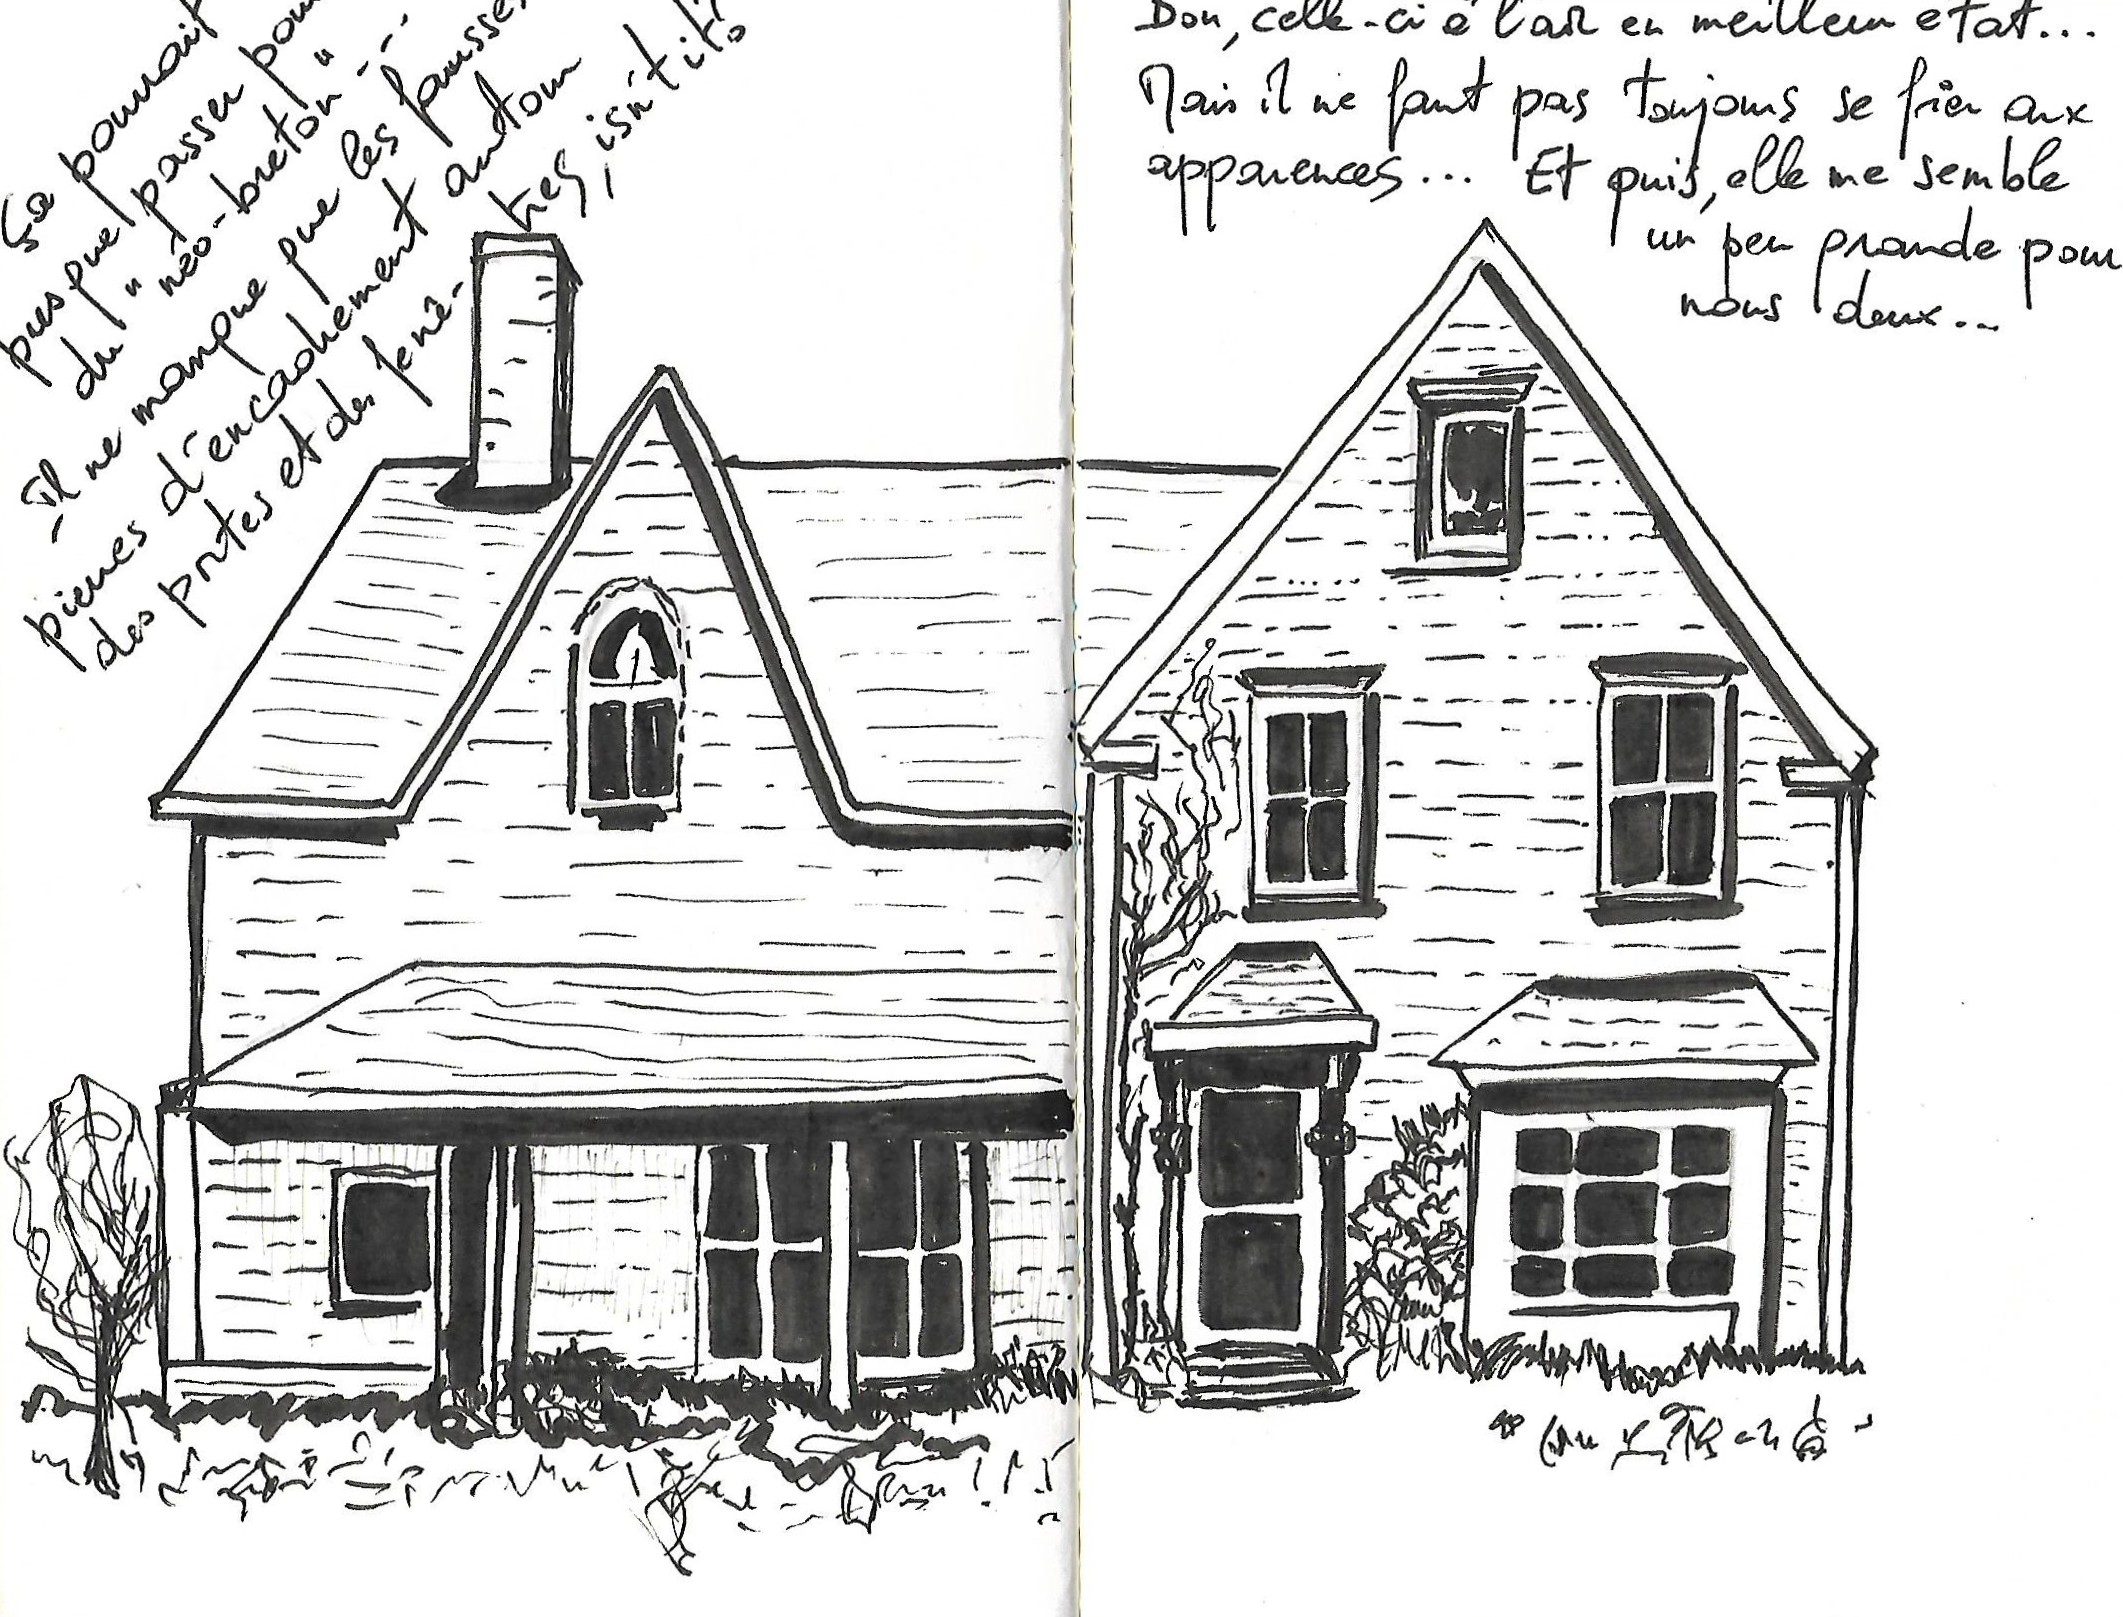 Ça pourrait
presque passer pour
du "néo-breton"...
Il ne manque que les fausses
pierres d'encadrement autour
des portes et des fenê-
tres, isn't it?
Bon, celle-ci a l'air en meilleur état...
Mais il ne faut pas toujours se fier aux
apparences... Et puis, elle me semble
un peu grande pour
nous deux...